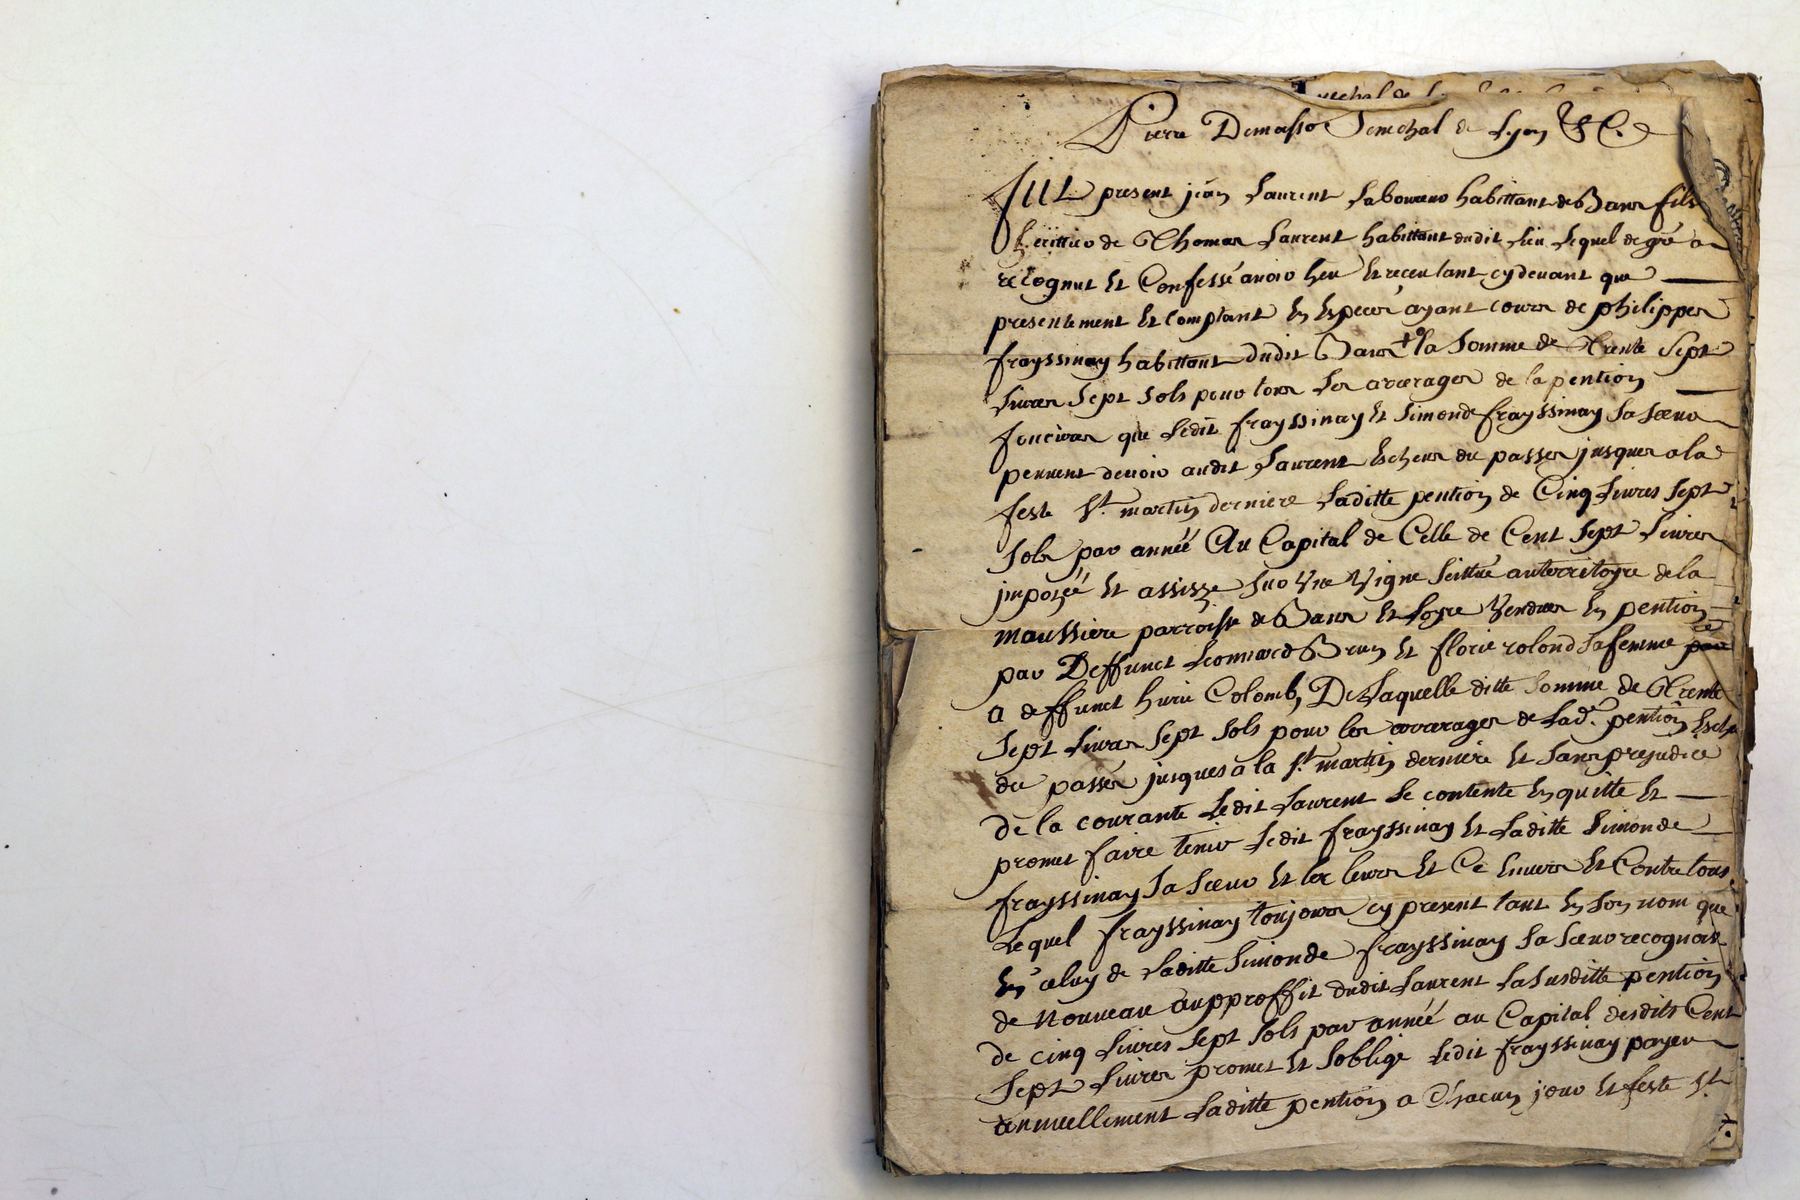 Pierre Demasso Senechal de Lyon &C.
FUT present jean Laurent Laboureur habittant de Bans fils
herittier de Thomas Laurent habittant dudit lieu Lequel de gré a
recognut Et Confessé avoir heu Et receu tant cy devant que
presentement Et Comptant En Especes ayant cours de philippes
frayssinay habittant dudit Bans la Somme de Trente Sept
Livres Sept Sols pour tous Les arrerages de la pention
fonciere que Ledit frayssinay Et Simonde frayssinay Sa Sœur
peuvent devoir audit Laurent Escheus du passes jusques a la
feste St. martin derniere Laditte pention de Cinq Livres Sept
Sols par année Au Capital de Celle de Cent Sept Livres
jmpozéé Et assisze Sur Vne Vigne Scittué au territoyre de la
maussiere parroisse de Bans Et Loyre Vendues En pention
par Deffunct Leonnard Brun Et florie rolond Sa femme
a deffunct hurie Colomb, De Laquelle ditte Somme de Trente
Sept Livres Sept Sols pour les arrerages de Lade. pention
du passés jusques a la St. martin derniere Et Sans prejudice
de la courante Ledit Laurent Se contente En quitte Et
promet faire tenir Ledit frayssinay Et Laditte Simonde
frayssinay Sa Sœur Et les leurs Et Ce Envers Et Contre tous
Lequel frayssinay toujours cy present tant En Son nom que
En celuy de Laditte Simonde frayssinay Sa Sœur recognoit
de Nouveau au proffit dudit Laurent La Susditte pention
de cinq Livres Sept Sols par année au Capital desdits Cent
Sept Livres promet Et Soblige Ledit frayssinay payer
annuellement Laditte pention a Chacun jour Et feste St